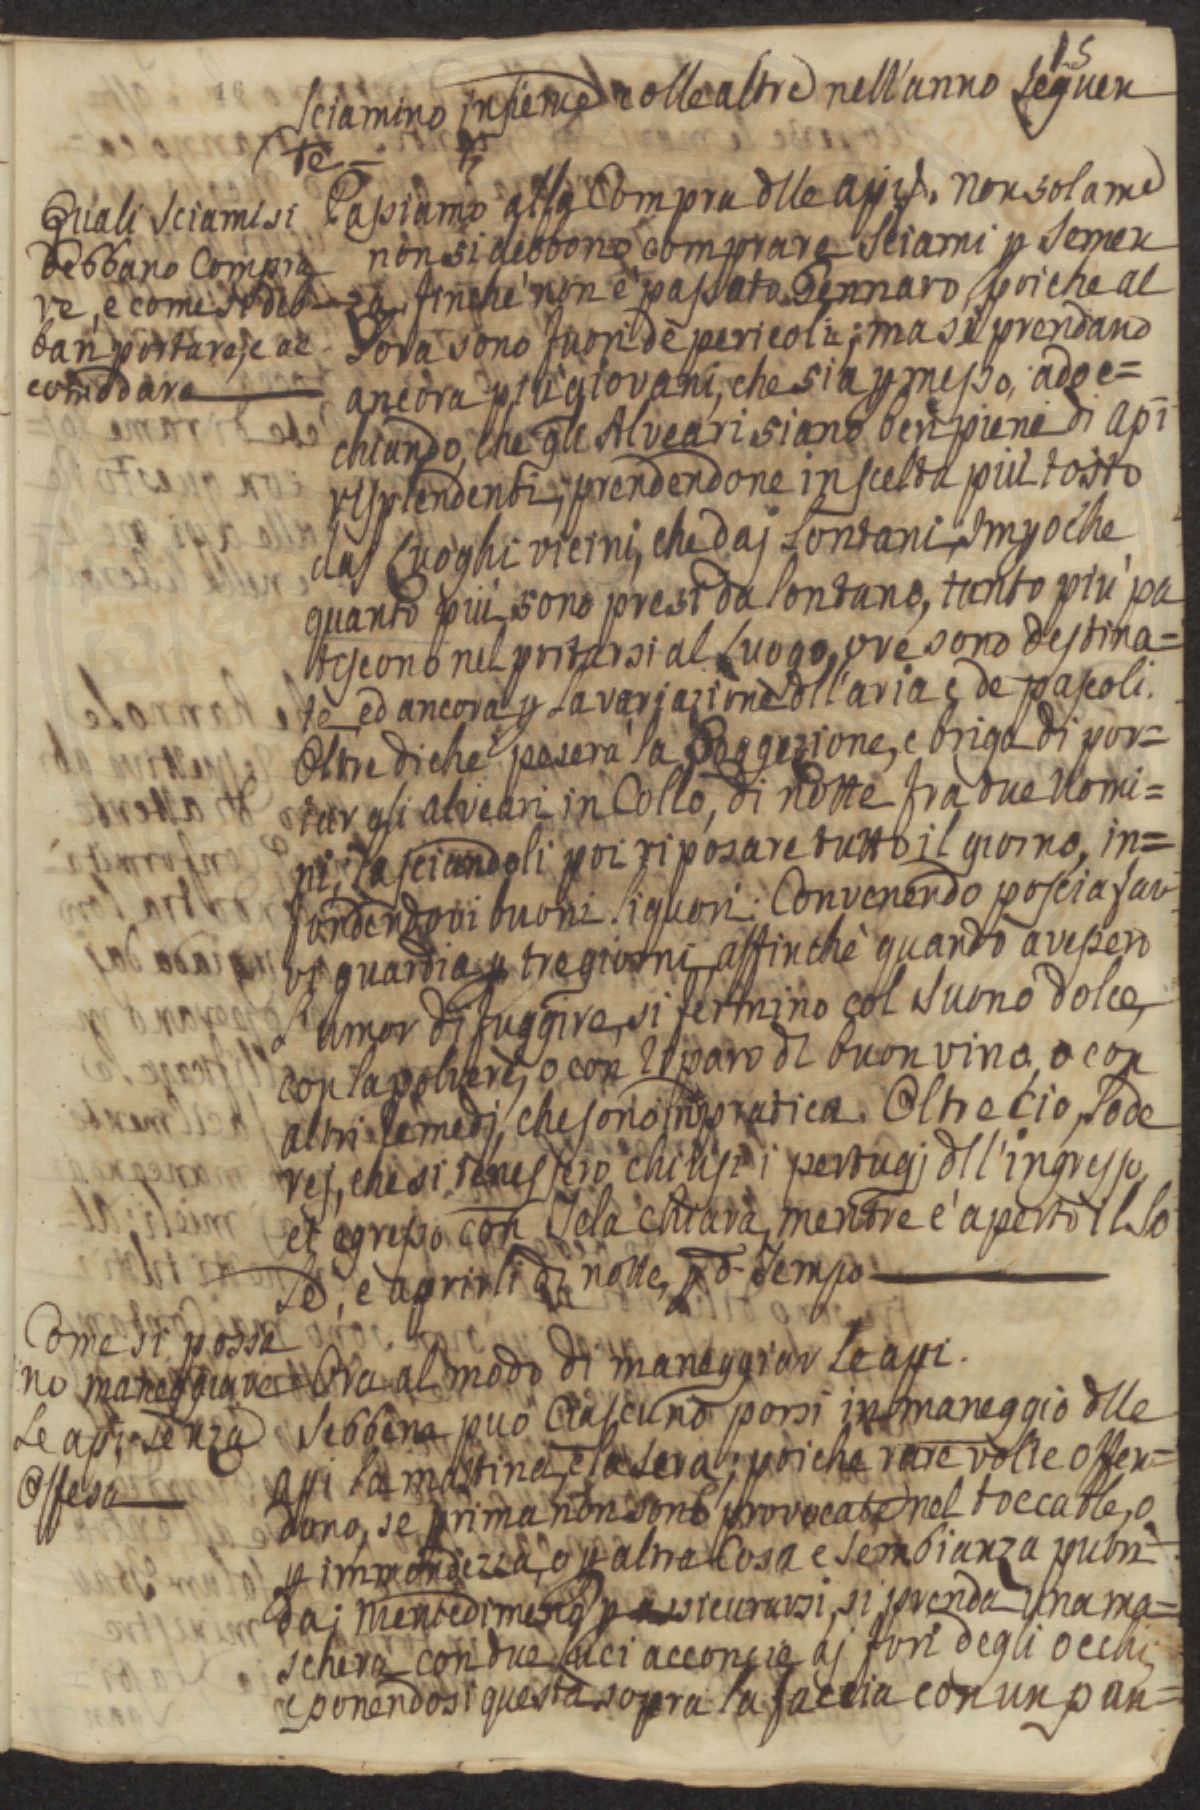 15
sciamino insieme colle altre nell'anno seguen
te
Quali sciami si
debbano Compra
re, e come si deb-
ban portare, e ac
comodare
Passiamo alla Compra dlle api. Non solamē
non si debbono comprare sciami p semen
za, finche non è passato Gennaro, poiche al
lora sono fuori de pericoli; ma si prendano
ancora più giovani, che sia p messo, adoc=
chiando, che gli Alveari siano ben piene di api
risplendenti, prendendone in scelta più tosto
daj Luoghi vicini, che daj Lontani, Impoche
quanto più sono presi da lontano, tanto più pa
tiscono nel portarsi al Luogo, ove sono destina=
te ed ancora p La variazione dll'aria e de pascoli.
Oltre di che peserà la Soggezione, e briga di por=
tar gli alveari in Collo, di notte fra due Uomi=
ni, lasciandoli poi riposare tutto il giorno, in=
fondendovi buoni liquori. Convenendo poscia far
vi guardia p tre giorni, affinchè quando avessero
umor di fuggire, si fermino col suono dolce,
con la polvere, o con lo sparo di buon vino, o con
altri remedj, che sono in pratica. Oltre Ciò, Lode
rej, che si tenessero chiusi i pertugj dll'ingresso,
et egresso con Tela chiara, mentre è aperto il So
le, e aprirli di notte, p d. tempo
Come si possa
no maneggiare
Le api senza
Offesa
Ora al modo di maneggiar Le api.
Sebbene può Ciascuno porsi in maneggio dlle
api la mattina, e la sera; poiche rare volte offen=
dono, se prima non sono provocate nel toccarle, o
p immondezza, o p altra Cosa e sembianza putri=
da; p assicurarsi, si prenda una ma=
schera con due luci acconcie aj fori degli occhi,
e ponendosi questa sopra la faccia con un pan=